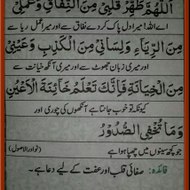 اَللّٰهُمَّ طَهِّرْ قَلْبِيْ مِنَ النِّفَاقِ وَعَمَلِيْ
اے اللہ! میرا دل پاک کر دے نفاق سے اور میرا عمل ریا سے
مِنَ الرِّيَاءِ وَلِسَانِيْ مِنَ الْكَذِبِ وَعَيْنِيْ
اور میری زبان جھوٹ سے اور میری آنکھ خیانت سے
مِنَ الْخِيَانَةِ فَاِنَّكَ تَعْلَمُ خَائِنَةَ الْاَعْيُنِ
کیونکہ تو خوب جانتا ہے آنکھوں کی چوری اور
وَمَا تُخْفِي الصُّدُوْرُ
جو کچھ سینوں میں چھپا ہوا ہے (نوادر الاصول)
فائدہ: صفائی قلب اور عفت کے لیے دعا ہے۔